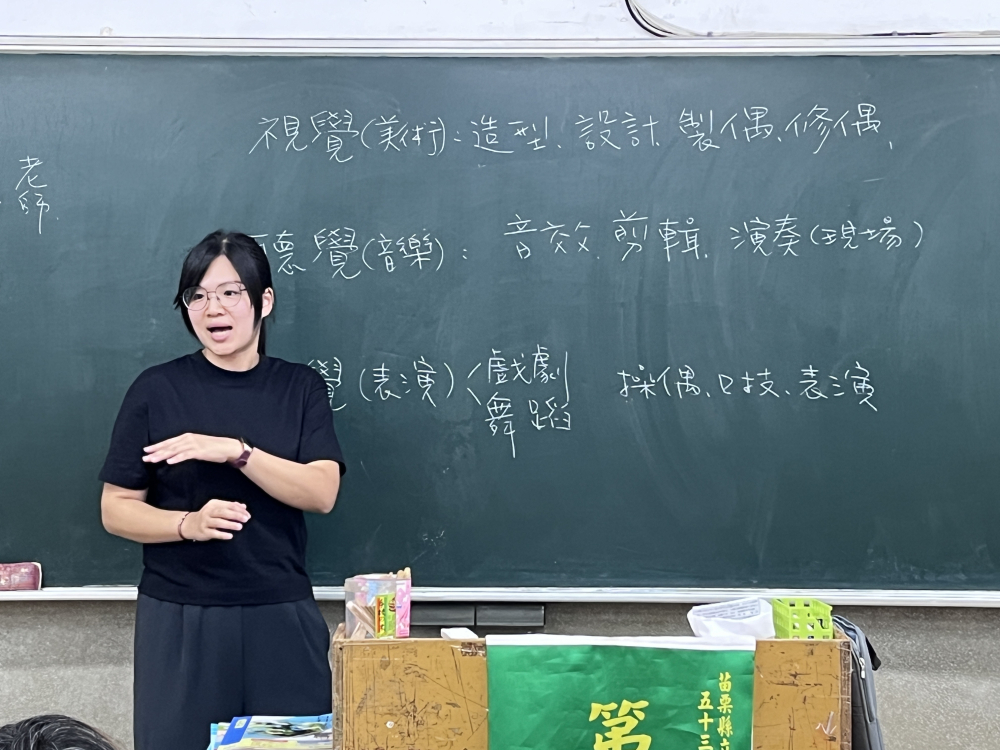 視覺(美術):造型、設計、製偶、修偶、
老師.
聽覺(音樂): 音效、剪輯、演奏(現場)
覺(表演)〈戲劇 操偶、口技、表演
舞蹈
第
苗栗縣
五十三